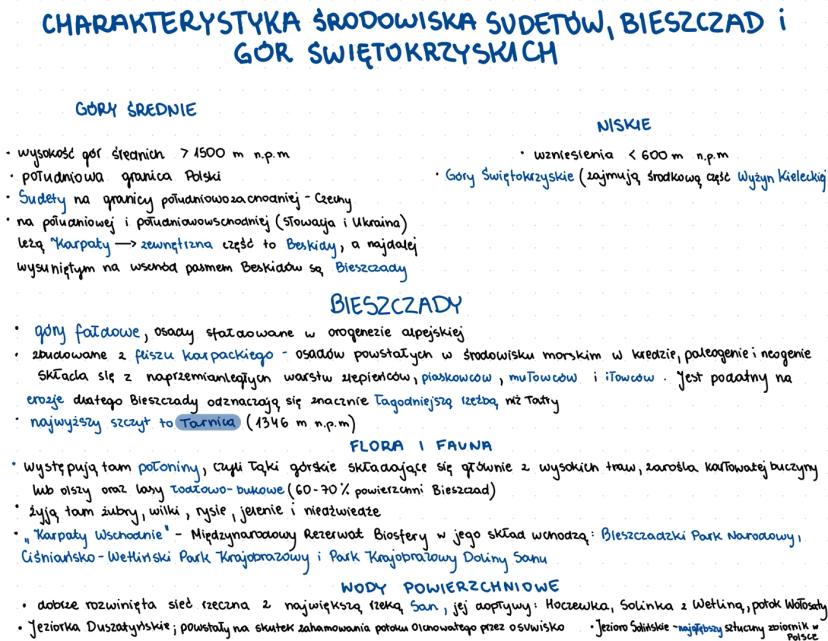 CHARAKTERYSTYKA ŚRODOWISKA SUDETÓW, BIESZCZAD i
GÓR ŚWIĘTOKRZYSKICH
GÓRY ŚREDNIE
• wysokość gór średnich > 1500 m n.p.m
• południowa granica Polski
• Sudety na granicy południowozachodniej - Czechy
• na południowej i południowowschodniej (Słowacja i Ukraina)
leżą Karpaty → zewnętrzna część to Beskidy, a najdalej
wysuniętym na wschód pasmem Beskidów są Bieszczady
NISKIE
• wzniesienia < 600 m n.p.m
• Góry Świętokrzyskie (zajmują środkową część Wyżyn Kieleckiej
BIESZCZADY
• góry fałdowe, osady sfałdowane w orogenezie alpejskiej
• zbudowane z fliszu karpackiego - osadów powstałych w środowisku morskim w kredzie, paleogenie i neogenie
Składa się z naprzemianległych warstw zlepieńców, piaskowców, mułowców i iłowców. Jest podatny na
erozje dlatego Bieszczady odznaczają się znacznie łagodniejszą rzeźbą niż Tatry
• najwyższy szczyt to Tarnica (1346 m n.p.m)
FLORA I FAUNA
• występują tam połoniny, czyli łąki górskie składające się głównie z wysokich traw, zarośla karłowatej buczyny
lub olszy oraz lasy jodłowo-bukowe (60-70% powierzchni Bieszczad)
• żyją tam żubry, wilki, rysie, jelenie i niedźwiedzie
• "Karpaty Wschodnie" - Międzynarodowy Rezerwat Biosfery w jego skład wchodzą: Bieszczadzki Park Narodowy,
Ciśniańsko-Wetliński Park Krajobrazowy i Park Krajobrazowy Doliny Sanu
WODY POWIERZCHNIOWE
• dobrze rozwinięta sieć rzeczna z największą rzeką San, jej dopływy: Hoczewka, Solinka z Wetliną, potok Wołosaty
• Jeziorka Duszatyńskie; powstały na skutek zahamowania potoku Olchowatego przez osuwisko • Jezioro Solińskie - najgłębszy sztuczny zbiornik w
Polsce